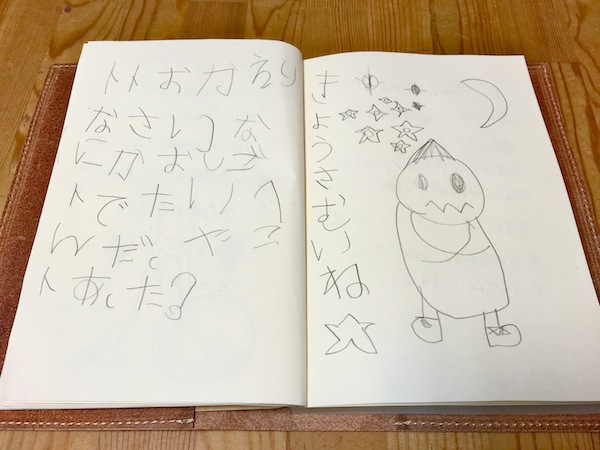 トトおかえり
なさいな
にかおしご
トでたいへ
んだ。やこ
トあった?
きょうさむいね